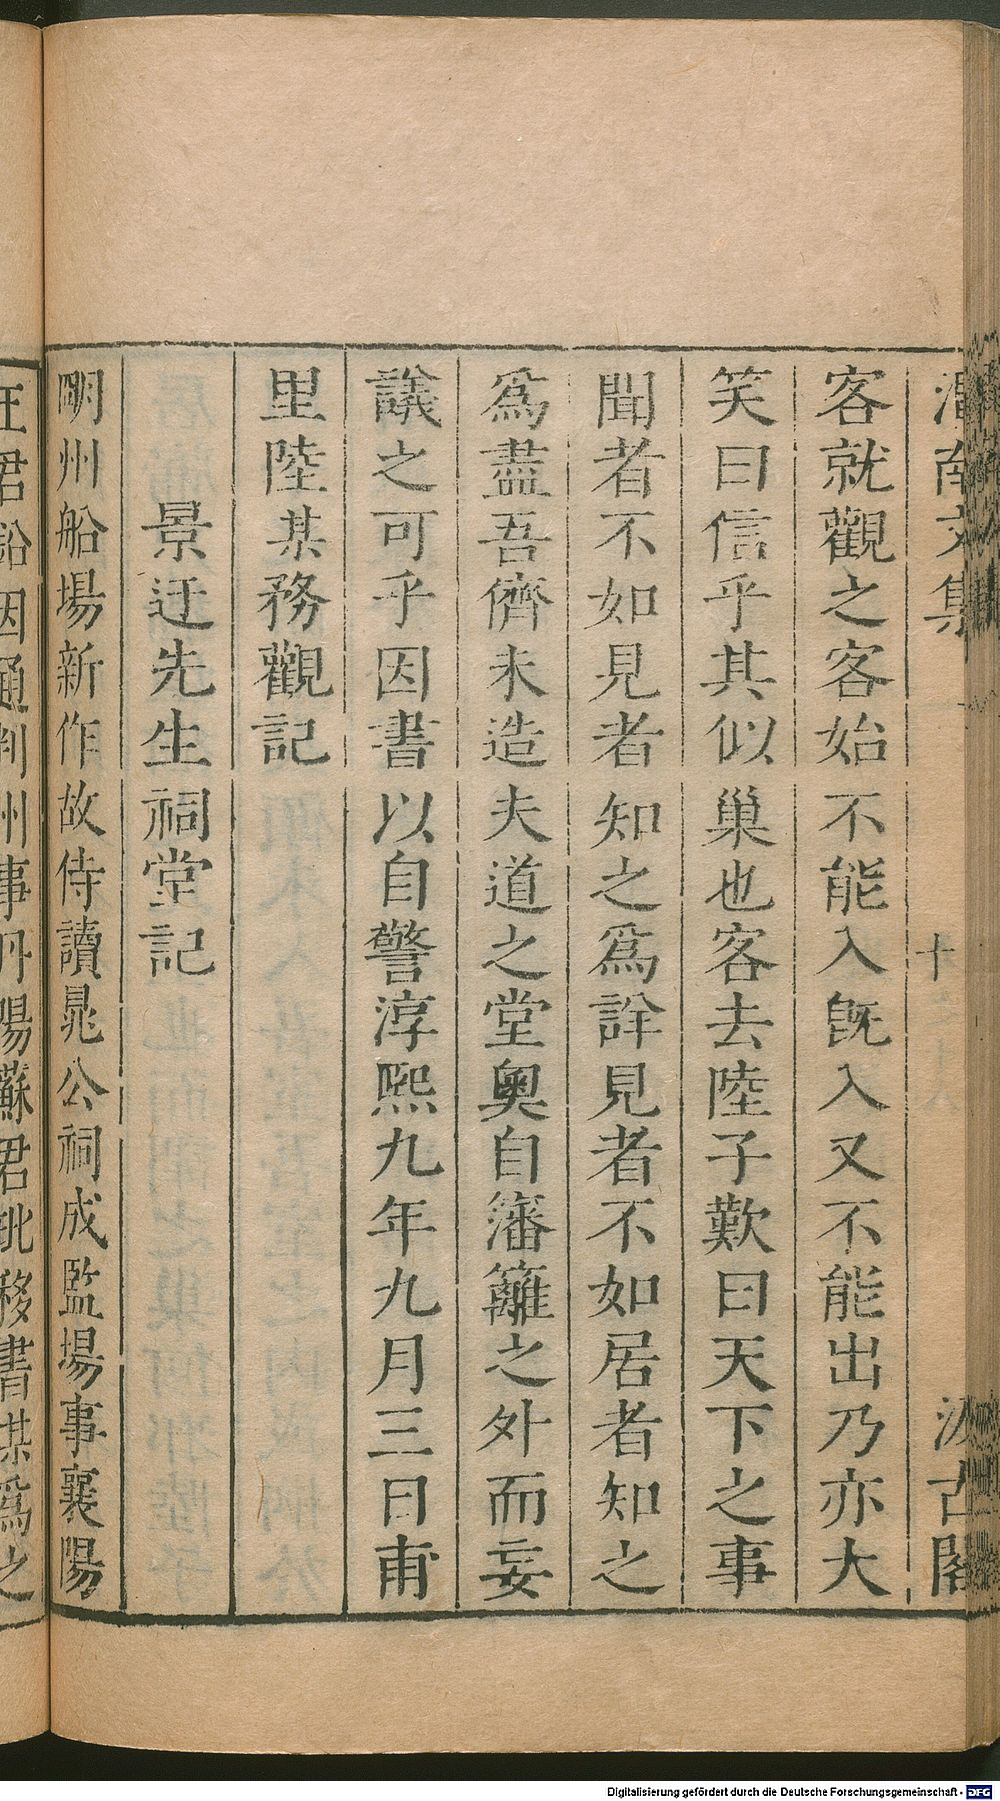 渭南文集
十
汲古閣
客就觀之客始不能入旣入又不能出乃亦大
笑曰信乎其似巢也客去陸子歎曰天下之事
聞者不如見者知之爲詳見者不如居者知之
爲盡吾儕未造夫道之堂奧自籓籬之外而妄
議之可乎因書以自警淳熙九年九月三日甫
里陸某務觀記
景迂先生祠堂記
明州船場新作故侍讀晁公祠成監場事襄陽
王君鉛因通判州事丹陽蘇君玭移書某爲之
Digitalisierung gefördert durch die Deutsche Forschungsgemeinschaft - DFG